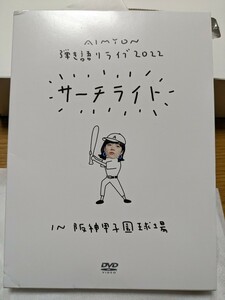 AIMYON
弾き語りライブ2022
サーチライト
IN 阪神甲子園球場
DVD
VIDEO